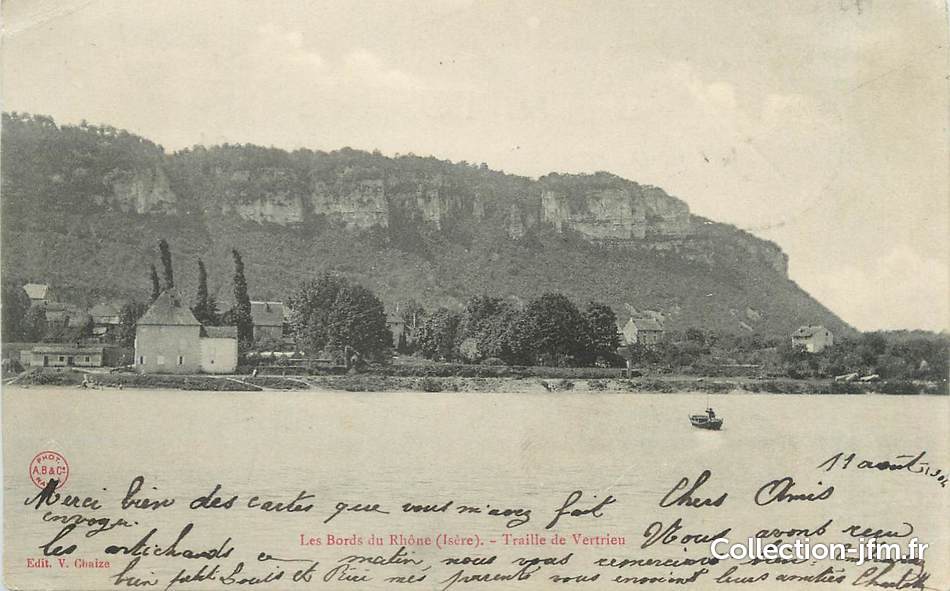 11 août
Chers Amis
Merci bien des cartes que vous m'avez fait
envoyer
Nous avons reçu
les artichauds ce matin, nous vous remercions bien
bien petit Louis et mes parents vous envoient leurs amitiés
Les Bords du Rhône (Isère). - Traille de Vertrieu
Edit. V. Chaize
PHOT.
A.B & Cie
Collection-jfm.fr